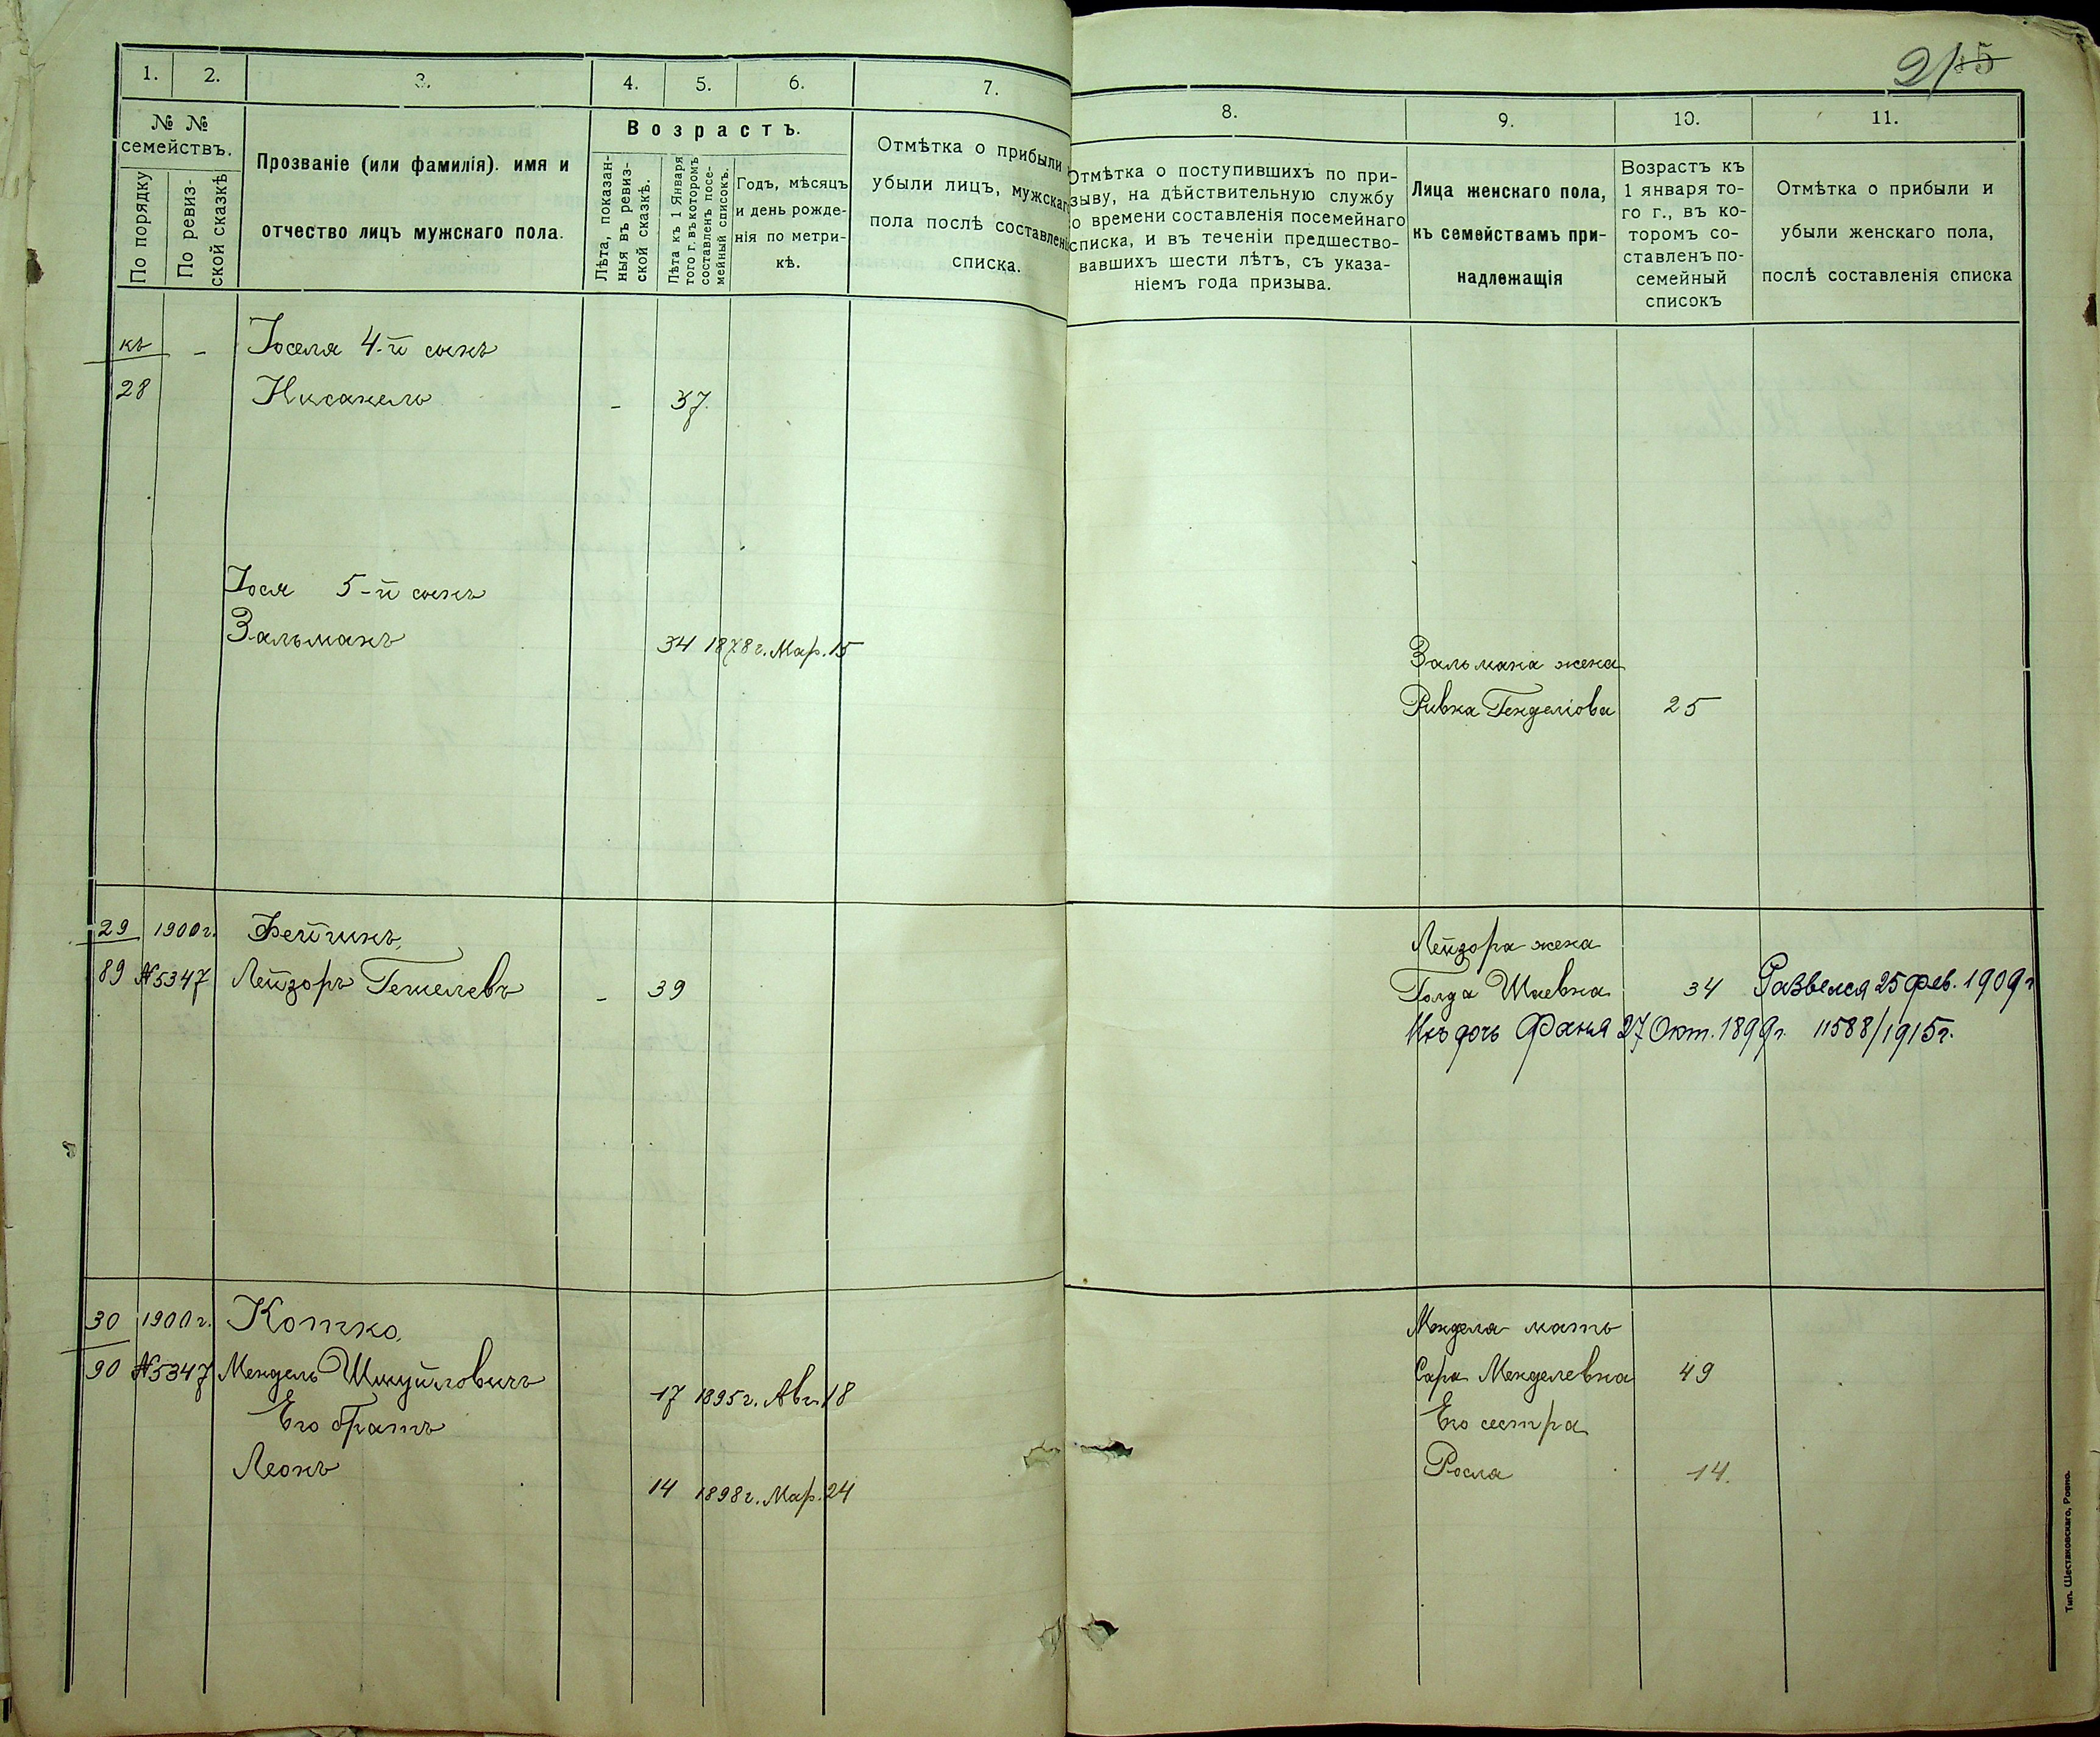 2/15
1. 2. 3. 4. 5. 6. 7.
№ №
семействъ.
По порядку
По ревиз-
ской сказкѣ
Прозваніе (или фамилія). имя и
отчество лицъ мужскаго пола.
Возрастъ.
Лѣта, показан-
ныя въ ревиз-
ской сказкѣ.
Лѣта къ 1 Января
того г. въ которомъ
составленъ посе-
мейный списокъ.
Годъ, мѣсяцъ
и день рожде-
нія по метри-
кѣ.
Отмѣтка о прибыли
убыли лицъ, мужскаго
пола послѣ составленія
списка.
къ - Іоселя 4-й сынъ
28 Нисанель - 37.
Іося 5-й сынъ
Зальманъ 34 1878 г. Мар. 15
29 1900 г. Фейгинъ,
89 №5347 Лейзоръ Гешелевъ - 39
30 1900 г. Котко,
90 №5347 Мендель Шмуйловичъ 17 1895 г. Авг. 18
Его братъ
Леонъ 14 1898 г. Мар. 24
8. 9. 10. 11.
Отмѣтка о поступившихъ по при-
зыву, на дѣйствительную службу
о времени составленія посемейнаго
списка, и въ теченіи предшество-
вавшихъ шести лѣтъ, съ указа-
ніемъ года призыва.
Лица женскаго пола,
къ семействамъ при-
надлежащія
Возрастъ къ
1 января то-
го г., въ ко-
торомъ со-
ставленъ по-
семейный
списокъ
Отмѣтка о прибыли и
убыли женскаго пола,
послѣ составленія списка
Зальмана жена
Ривка Генделіова 25
Лейзора жена
Голда Шаевна 34 Развелся 25 фев. 1909 г
Ихъ дочь Фаня 27 Окт. 1899 г. 11588/1915 г.
Менделя мать
Сара Менделевна 49
Его сестра
Росла 14.
Тип. Шестаковскаго, Ровно.